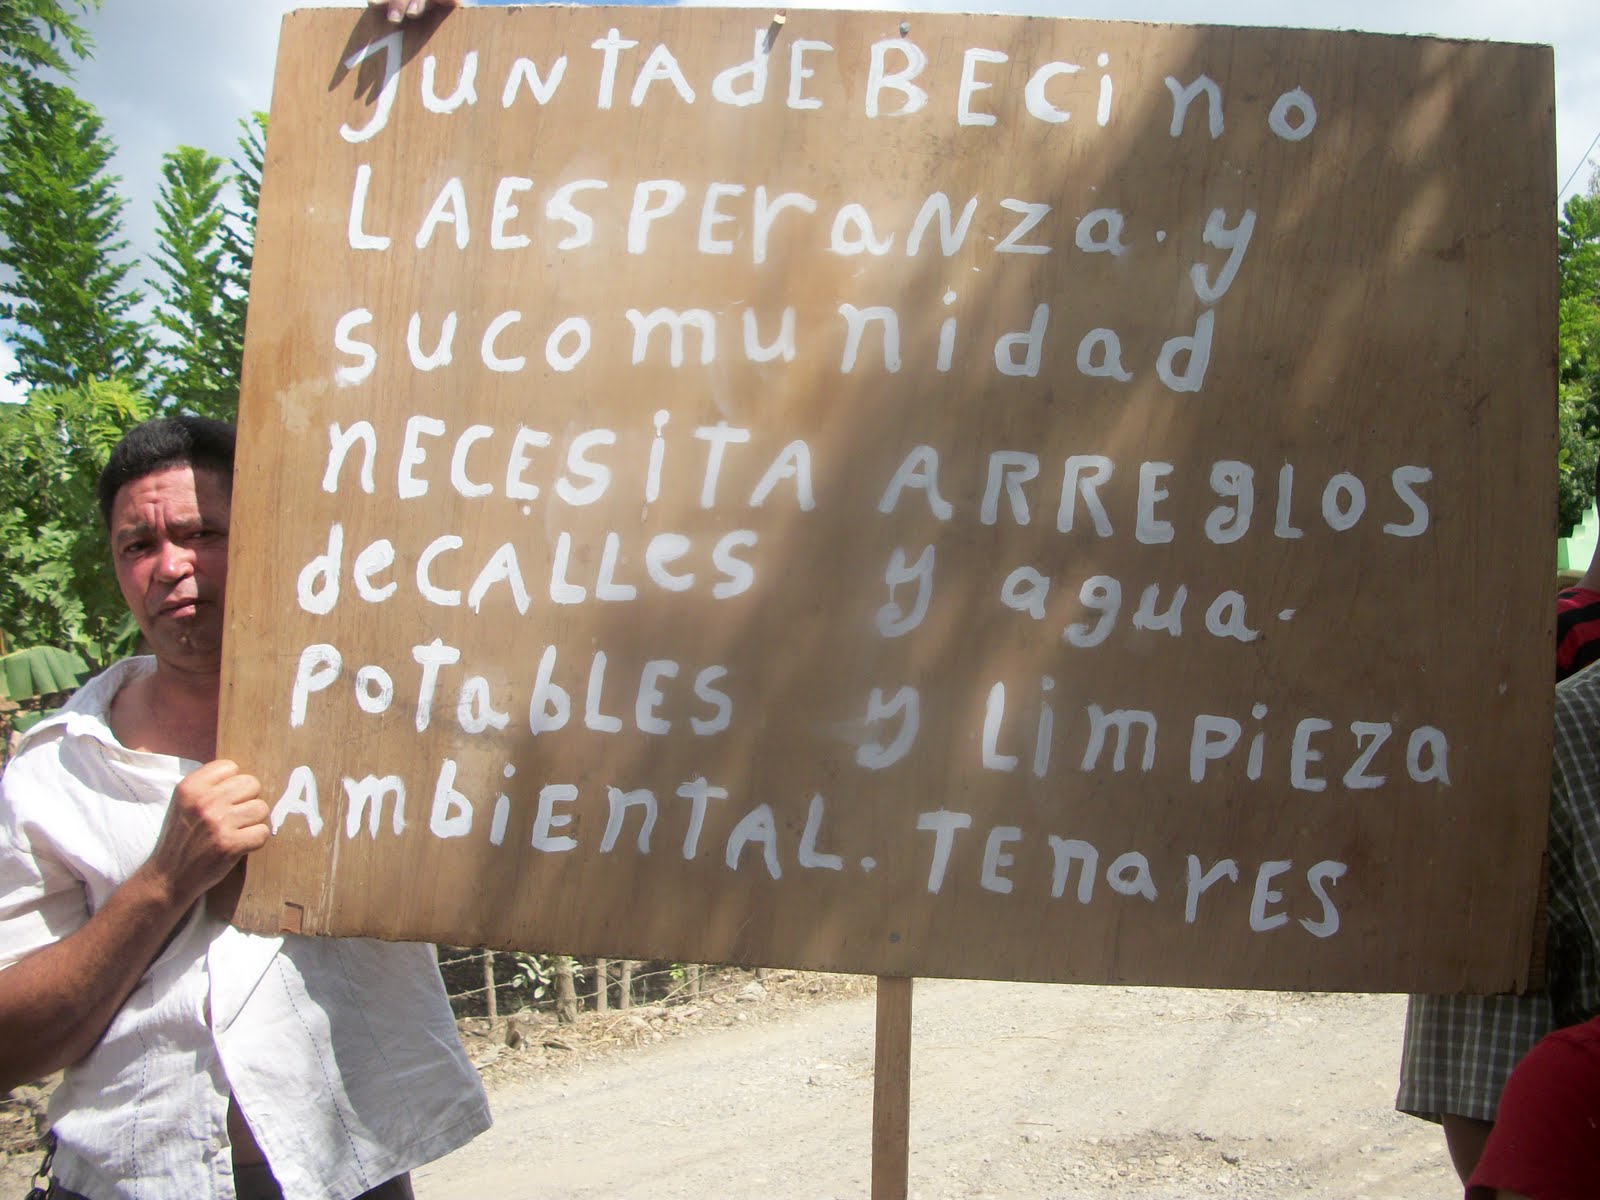 JUNTAdE BECino
LAESPEranza. y
sucomunidad
nECESiTA ARREglOS
deCALLes y agua.
PoTabLES y LimPiEZa
AmbiEnTAL. TEnarES